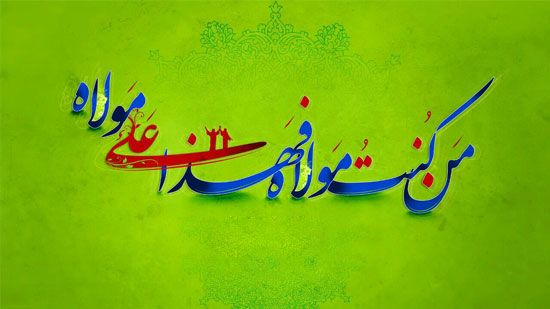 مَن كُنتُ مَولاه فَهذا عَلی مَولاه